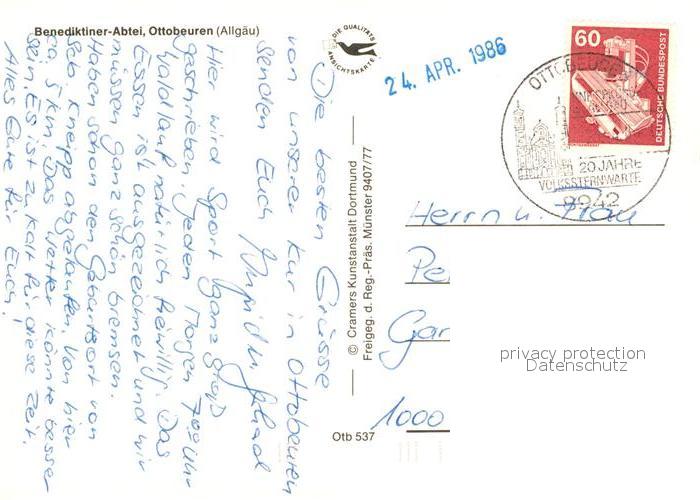 Benediktiner-Abtei, Ottobeuren (Allgäu)
DIE QUALITÄTS
ANSICHTSKARTE
24. APR. 1986
60
DEUTSCHE BUNDESPOST
OTTOBEUREN
20 JAHRE
VOLKSSTERNWARTE
8942
Die besten Grüsse
von unserer Kur in Ottobeuren
senden Euch
Hier wird Sport ganz groß
geschrieben. Jeden Morgen 7°° Uhr
Waldlauf natürlich freiwillig. Das
Essen ist ausgezeichnet und wir
müssen ganz schön bremsen.
Haben schon den Geburtsort von
Seb. Kneipp abgelaufen, von hier
ca. 5 km. Das Wetter könnte besser
sein. Es ist zu kalt für diese Zeit.
Alles Gute für Euch.
© Cramers Kunstanstalt Dortmund
Freigeg. d. Reg.-Präs. Münster 9407/77
Otb 537
Herrn u. Frau
Pe
Gar
1000
privacy protection
Datenschutz